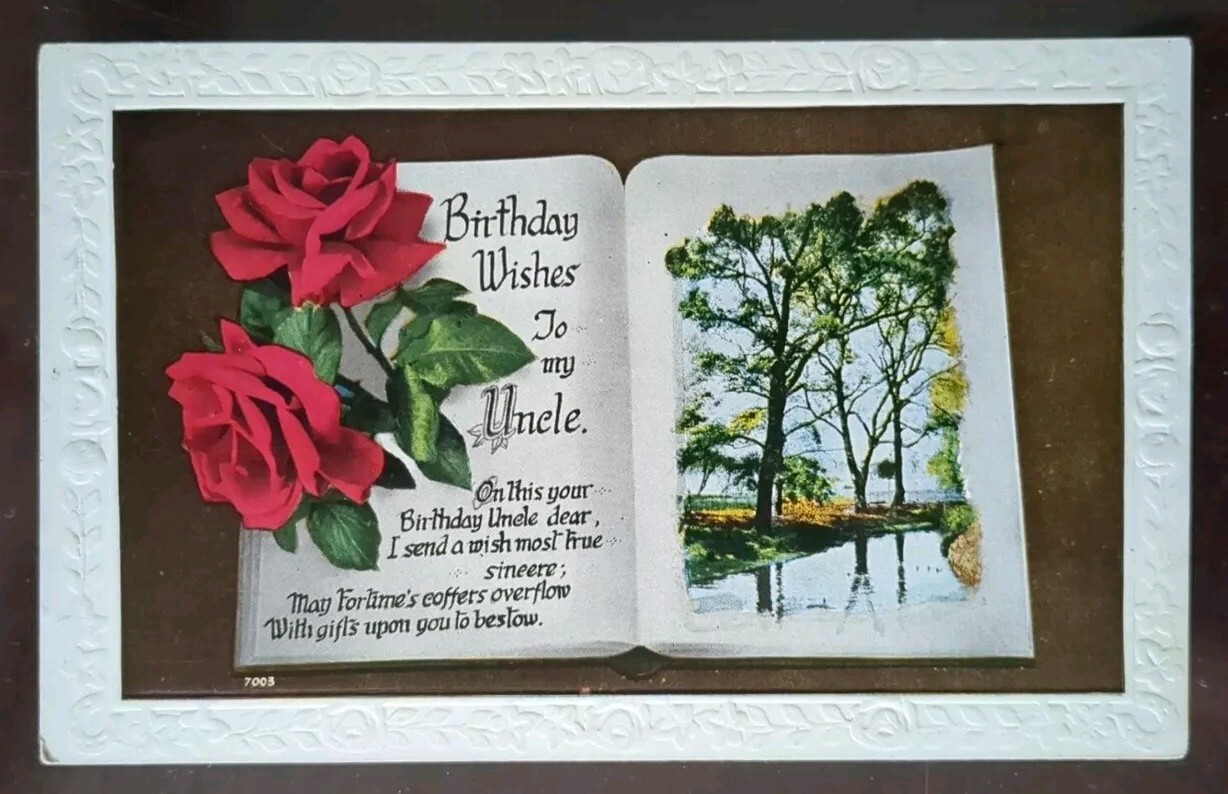 Birthday
Wishes
To
my
Uncle.
On this your
Birthday Uncle dear,
I send a wish most true
sincere;
May Fortune's coffers overflow
With gifts upon you to bestow.
7003